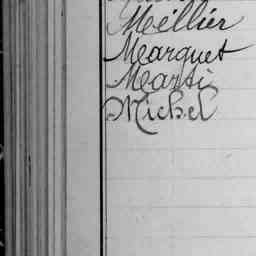 Méllier
Marquet
Marti
Michel